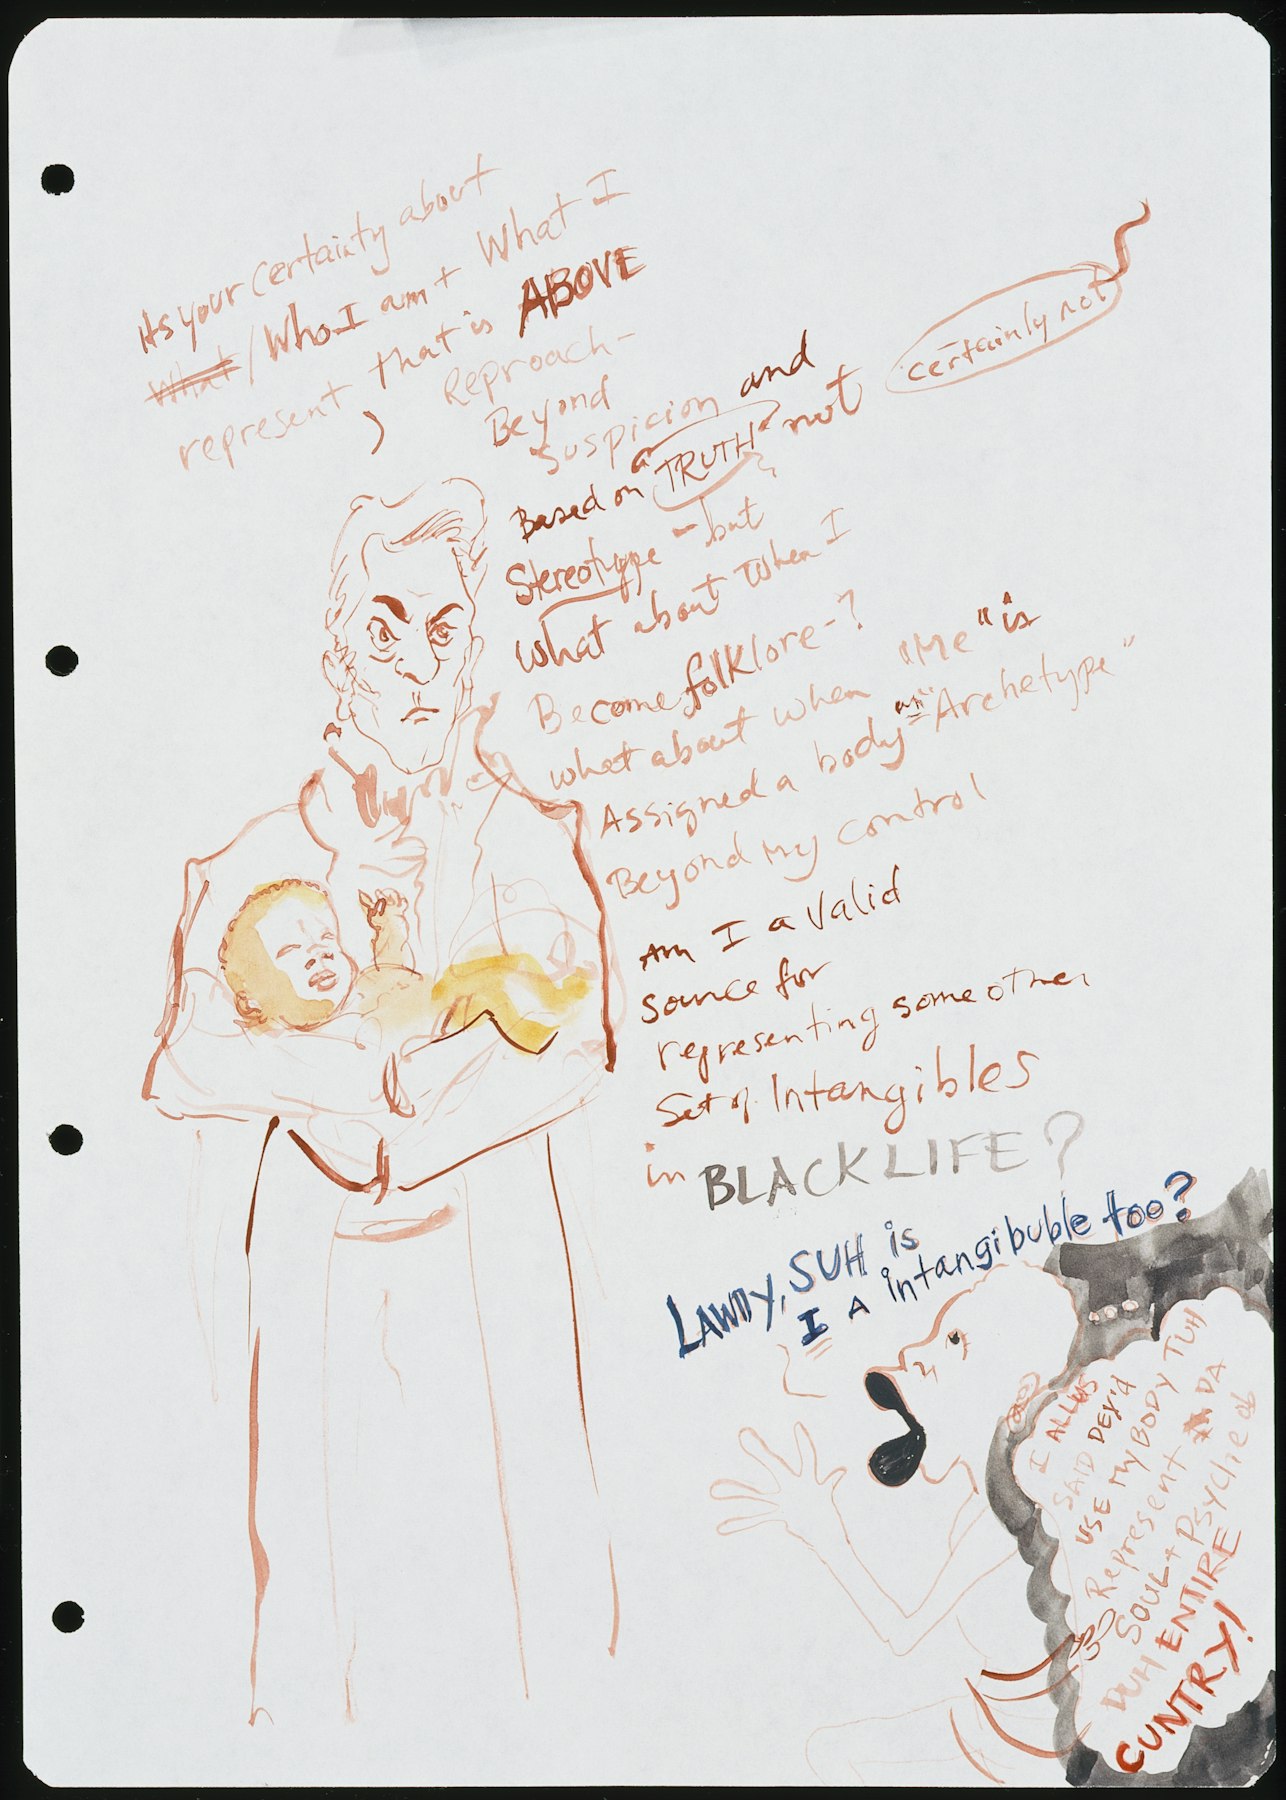 Is your certainty about
What/Who I am + What I
represent that is ABOVE
Reproach-
Beyond
Suspicion and
Based on a TRUTH not
certainly not
Stereotype - but
what about when I
Become folklore-?
what about when "Me" is
Assigned a body as "Archetype"
Beyond my control
Am I a Valid
source for
representing some other
Set of Intangibles
in BLACK LIFE?
LAWDY, SUH is
I A intangibuble too?
...
I ALLUS
SAID DEY'd
USE MY BODY TUH
Represent DA
SOUL + Psyche ob
DUH ENTIRE
CUNTRY!